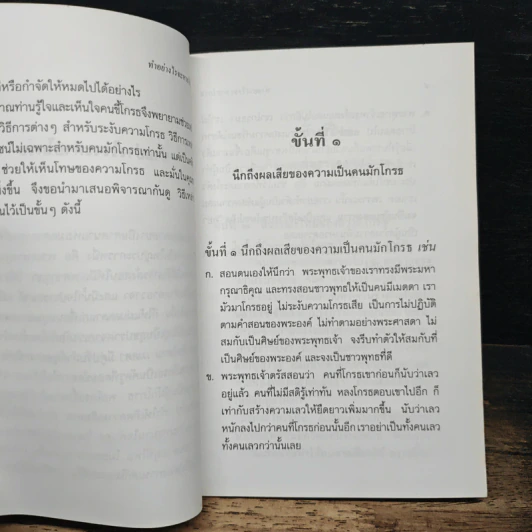 ทำอย่างไรจะหาย
หรือกำจัดให้หมดไปได้อย่างไร
ท่านรู้ใจและเห็นใจคนขี้โกรธจึงพยายาม
วิธีการต่างๆ สำหรับระงับความโกรธ วิธีการ
ไม่เฉพาะสำหรับคนมักโกรธเท่านั้น แต่เป็น
ช่วยให้เห็นโทษของความโกรธ และมั่นในคุณ
ขึ้น จึงขอนำมาเสนอพิจารณากันดู วิธี
ไว้เป็นขั้นๆ ดังนี้
ขั้นที่ ๑
นึกถึงผลเสียของความเป็นคนมักโกรธ
ขั้นที่ ๑ นึกถึงผลเสียของความเป็นคนมักโกรธ เช่น
ก. สอนตนเองให้นึกว่า พระพุทธเจ้าของเราทรงมีพระมหา
กรุณาธิคุณ และทรงสอนชาวพุทธให้เป็นคนมีเมตตา เรา
มัวมาโกรธอยู่ ไม่ระงับความโกรธเสีย เป็นการไม่ปฏิบัติ
ตามคำสอนของพระองค์ ไม่ทำตามอย่างพระศาสดา ไม่
สมกับเป็นศิษย์ของพระพุทธเจ้า จงรีบทำตัวให้สมกับที่
เป็นศิษย์ของพระองค์ และจงเป็นชาวพุทธที่ดี
ข. พระพุทธเจ้าตรัสสอนว่า คนที่โกรธเขาก่อนก็นับว่าเลว
อยู่แล้ว คนที่ไม่มีสติรู้เท่าทัน หลงโกรธตอบเขาไปอีก ก็
เท่ากับสร้างความเลวให้ยืดยาวเพิ่มมากขึ้น นับว่าเลว
หนักลงไปกว่าคนที่โกรธก่อนนั้นอีก เราอย่าเป็นทั้งคนเลว
ทั้งคนเลวกว่านั้นเลย